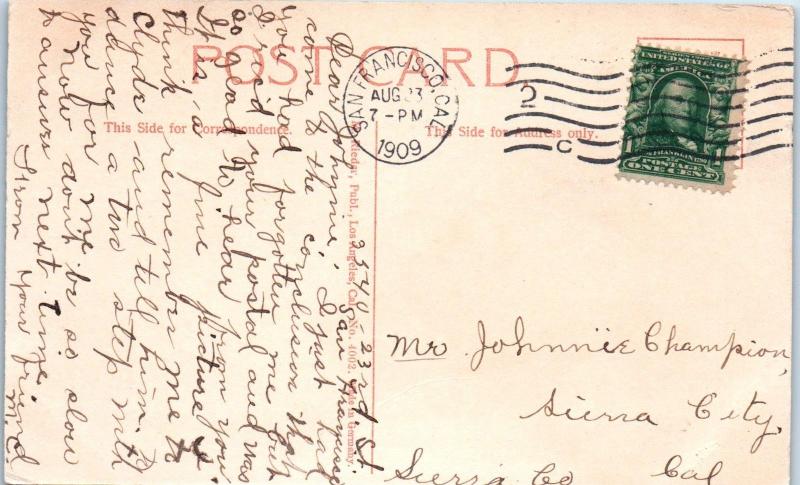 POST CARD
This Side for Correspondence.
This Side for Address only.
SAN FRANCISCO, CAL.
AUG 23
7-PM
1909
2
C
UNITED STATES OF
AMERICA
FRANKLIN
POSTAGE
1 ONE CENT 1
Publ., Los Angeles, Cal. No. 4002. Made in Germany.
3540 23rd St.
San Francisco
Dear Johnnie, I just had
come to the conclusion that
you had forgotten me but
I rec'd your postal and was
so good to hear from you.
It is a fine picture I
think remember me to
Clyde and tell him to
dance a two step with
you for me
Now don't be so slow
to answer next time.
From your friend
M.C.
Mr. Johnnie Champion,
Sierra City,
Sierra Co Cal